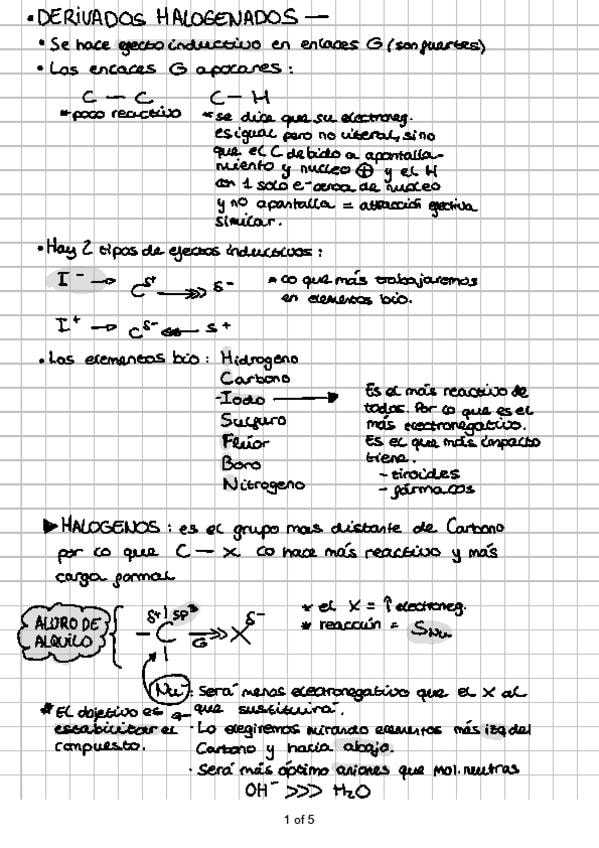 • DERIVADOS HALOGENADOS —
• Se hace efecto inductivo en enlaces G (son fuertes)
• Los enlaces G apolares :
C — C    C — H
* poco reactivo  * se dice que su electroneg.
es igual pero no literal, sino
que el C debido a apantalla-
miento y nucleo ⊕ y el H
con 1 solo e⁻ cerca de nucleo
y no apantalla = atracción efectiva
similar.
• Hay 2 tipos de efectos inductivos :
I⁻ → C δ+ →>> δ-  * lo que más trabajaremos
en elementos bio.
I⁺ → C δ- <<← δ+
• Los elementos bio : Hidrogeno
Carbono
- Iodo → Es el más reactivo de
todos. Por lo que es el
más electronegativo.
Sulfuro
Flúor Es el que más impacto
tiene.
Boro - tiroides
Nitrogeno - fármacos
▶ HALOGENOS : es el grupo mas distante de Carbono
por lo que C — X lo hace más reactivo y más
carga formal
ALURO DE
ALQUILO
δ+ | sp³
— C →>> X δ-
G
* el X = ↑ electroneg.
* reacción = SNu
Nu⁻ : Será menos electronegativo que el X al
que sustituirá.
* El objetivo es
estabilizar el
compuesto.
· Lo elegiremos mirando elementos más izq del
Carbono y hacia abajo.
· Será más óptimo aniones que mol. neutras
OH⁻ >>> H₂O
1 of 5